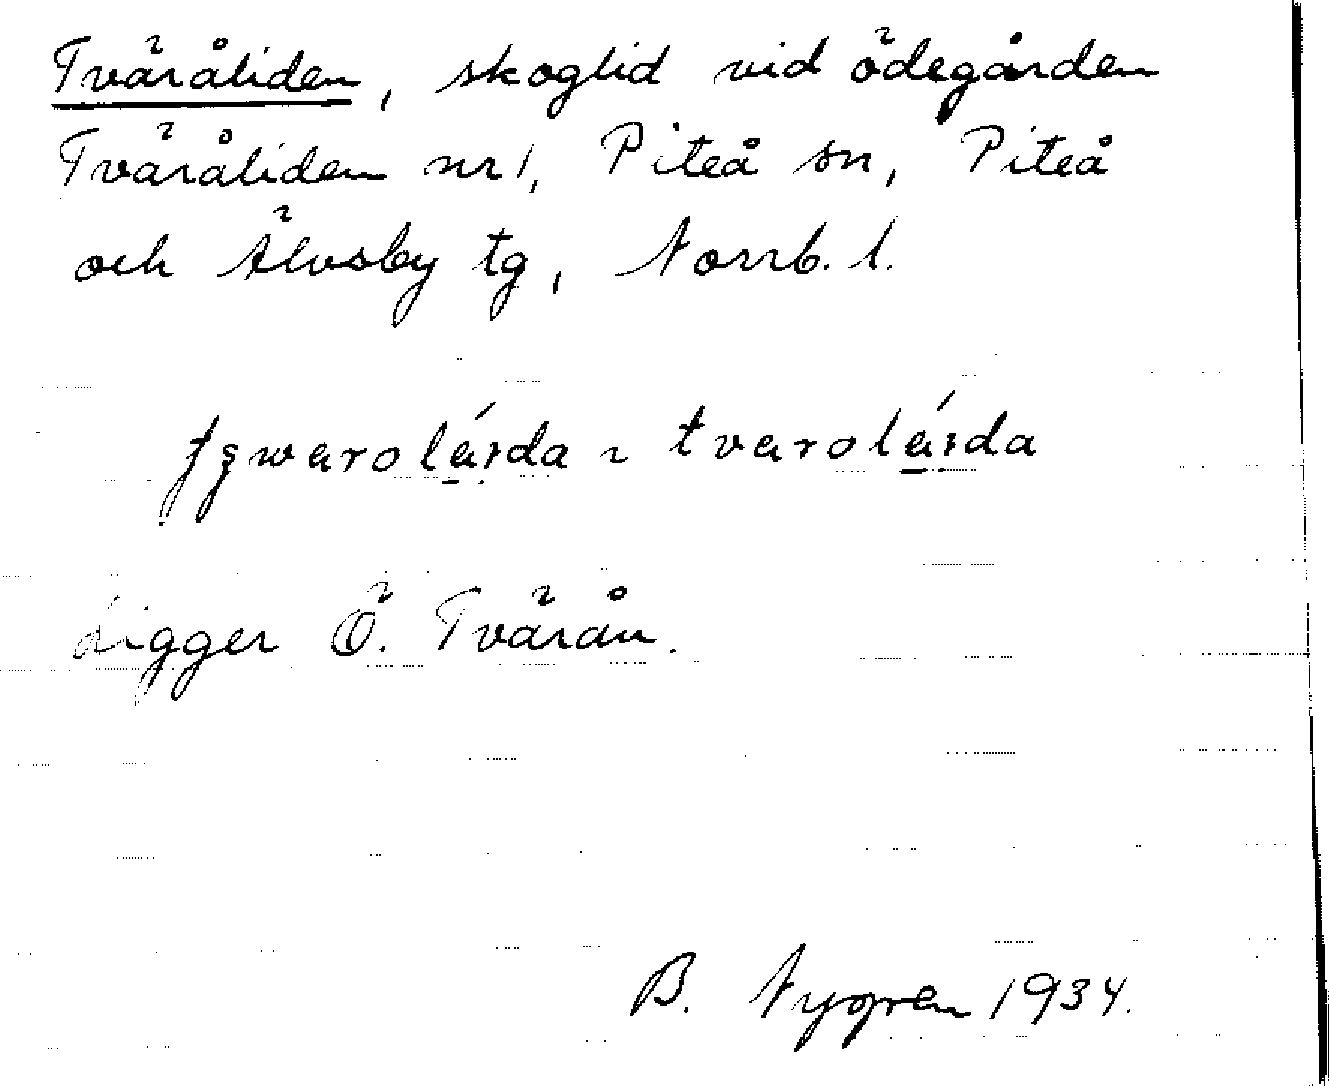 Tväråliden, skoglid vid ödegården
Tväråliden nr 1, Piteå sn, Piteå
och Älvsby tg, Norrb. l.
tʂwaroláida ~ tvaroláida
Ligger Ö. Tvärån.
B. Nygren 1934.